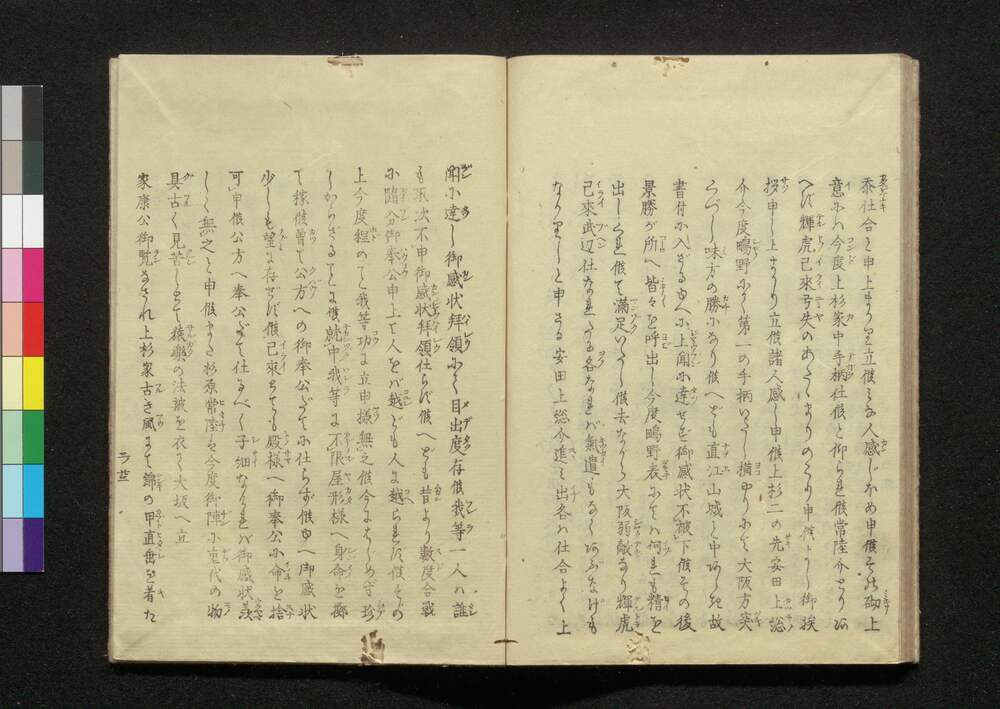 忝仕合と申上まかり立候ミな人感じほめ申候其砌上
意ニハ今度上杉家中手柄仕候と仰られ候常陸介とりあ
へず輝虎已來弓矢のあたゝまりのこり申候よし御挨
拶申し上まかり立候諸人感し申候上杉二の先安田上総
介今度鴫野にて第一の手柄いたし横やりにて大阪方突
くづし味方の勝になり候へども直江山城と中あしき故
書付に入ざるゆへに上聞に達せず御感状不被下候その後
景勝が所へ皆々を呼出し今度鴫野表にてハ何れも精を
出しくれ候て満足いたし候去ながら大阪弱敵なり輝虎
已來武辺仕なれたる各なれバ氣遣ハもなくあぶなげも
なかりしと申さる安田上総介進ミ出各ハ仕合よく上
聞に達し御感状拜領にて目出度存候我等一人ハ誰
も取次不申御感状拜領仕らず候へども昔より數度合戰
に隨分御奉公申上て人をバ越ども人に越られず候その
上今度程のてハ我等功に立申様無之候今にはじめず珍
しからざるてに候就中我等は不限屋形様へ身命を擲
て稼候曾て公方への御奉公だてに仕らず候ゆへ御感状
少しも望に存せず候已來ちても殿様へ御奉公に命を捨
可申候公方へ奉公だて仕るべく子細なけれバ御感状羨
しく無之と申候また杉原常陸も今度御陣に重代の物
具古く見苦しとて猿樂の法被を衣て大坂へ立
家康公御覧なされ上杉家古き風にて錦の甲直垂を着た